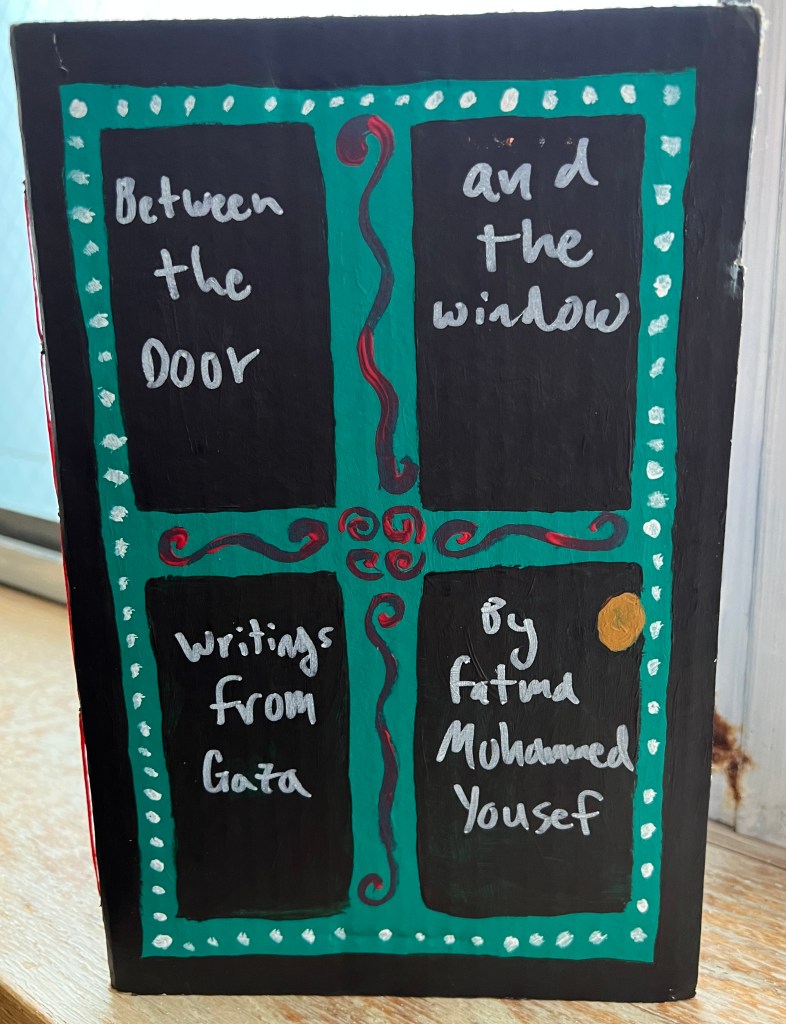 Between
the
Door
and
the
window
Writings
from
Gaza
By
Fatma
Muhammed
Yousef